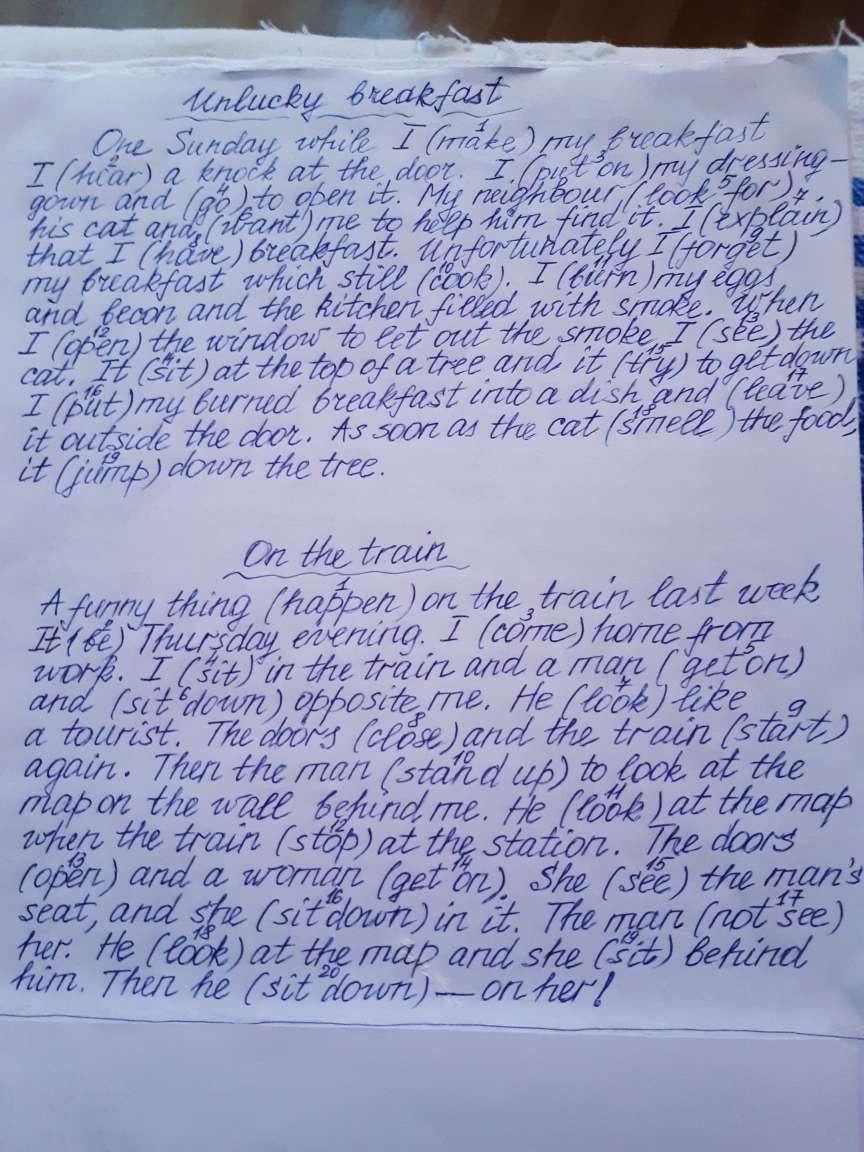 Unlucky breakfast
One Sunday while I (make) my breakfast
1
I (hear) a knock at the door. I (put on) my dressing-
2 3
gown and (go) to open it. My neighbour (look for)
4 5
his cat and (want) me to help him find it. I (explain)
6 7
that I (have) breakfast. Unfortunately I (forget)
8 9
my breakfast which still (cook). I (burn) my eggs
10 11
and becon and the kitchen filled with smoke. When
I (open) the window to let out the smoke, I (see) the
12 13
cat. It (sit) at the top of a tree and it (try) to get down
14 15
I (put) my burned breakfast into a dish and (leave)
16 17
it outside the door. As soon as the cat (smell) the food,
18
it (jump) down the tree.
19
On the train
A funny thing (happen) on the train last week
1
It (be) Thursday evening. I (come) home from
2 3
work. I (sit) in the train and a man (get on)
4 5
and (sit down) opposite me. He (look) like
6 7
a tourist. The doors (close) and the train (start)
8 9
again. Then the man (stand up) to look at the
10
map on the wall behind me. He (look) at the map
11
when the train (stop) at the station. The doors
12
(open) and a woman (get on). She (see) the man's
13 14 15
seat, and she (sit down) in it. The man (not see)
16 17
her. He (look) at the map and she (sit) behind
18 19
him. Then he (sit down) — on her!
20